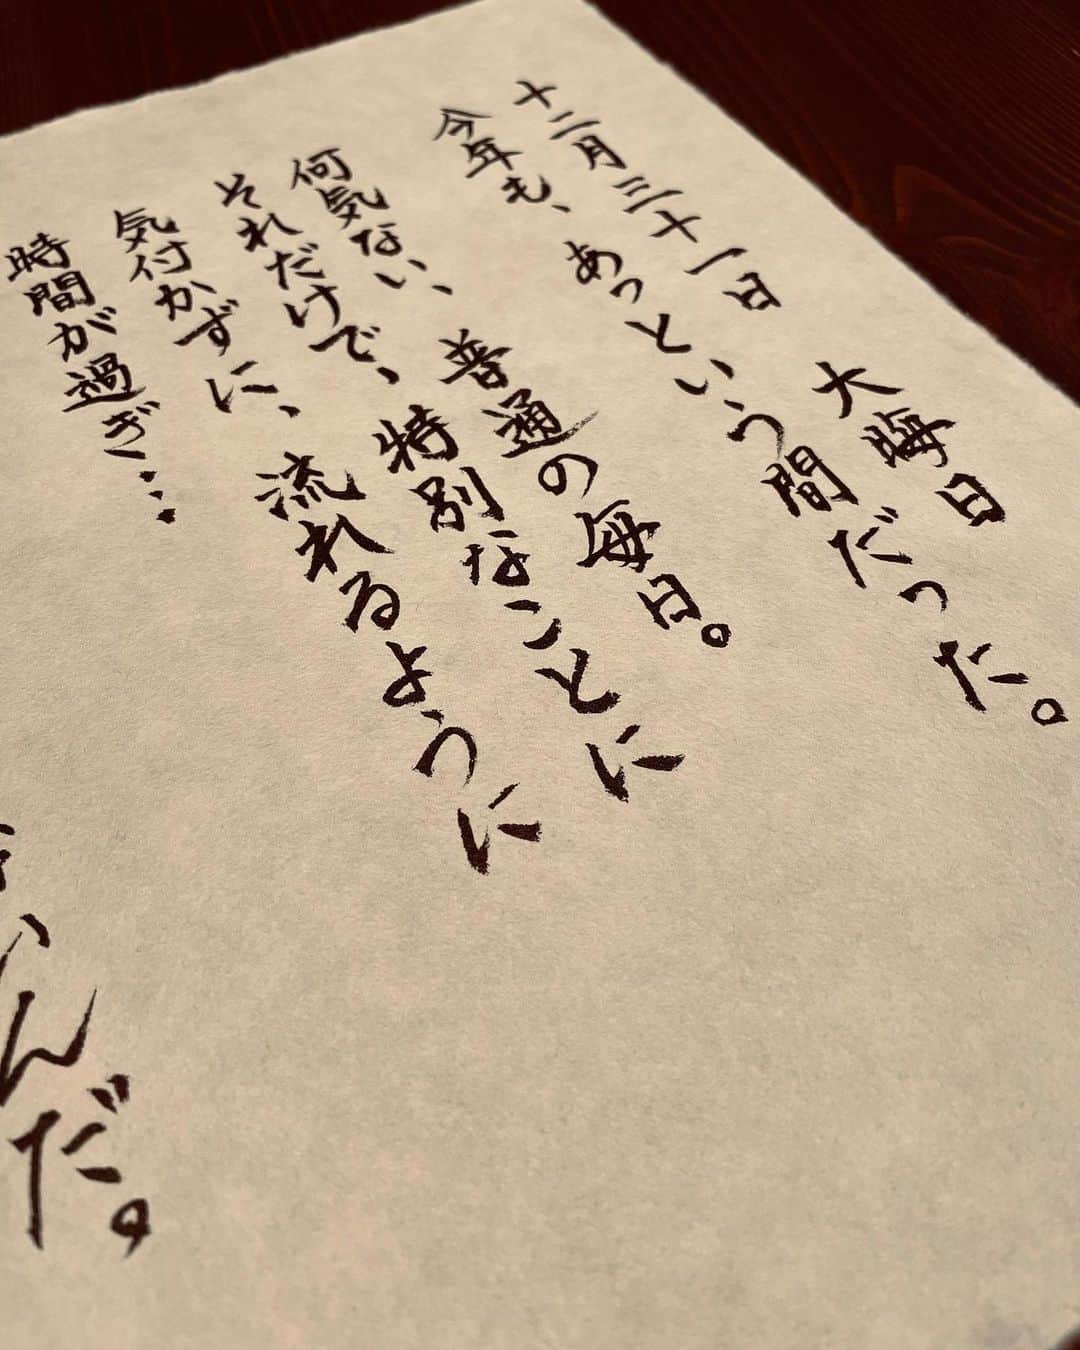 十二月三十一日 大晦日
今年も、あっという間だった。
何気ない、普通の毎日。
それだけで、特別なことに
気付かずに、流れるように
時間が過ぎ・・・
んだ。